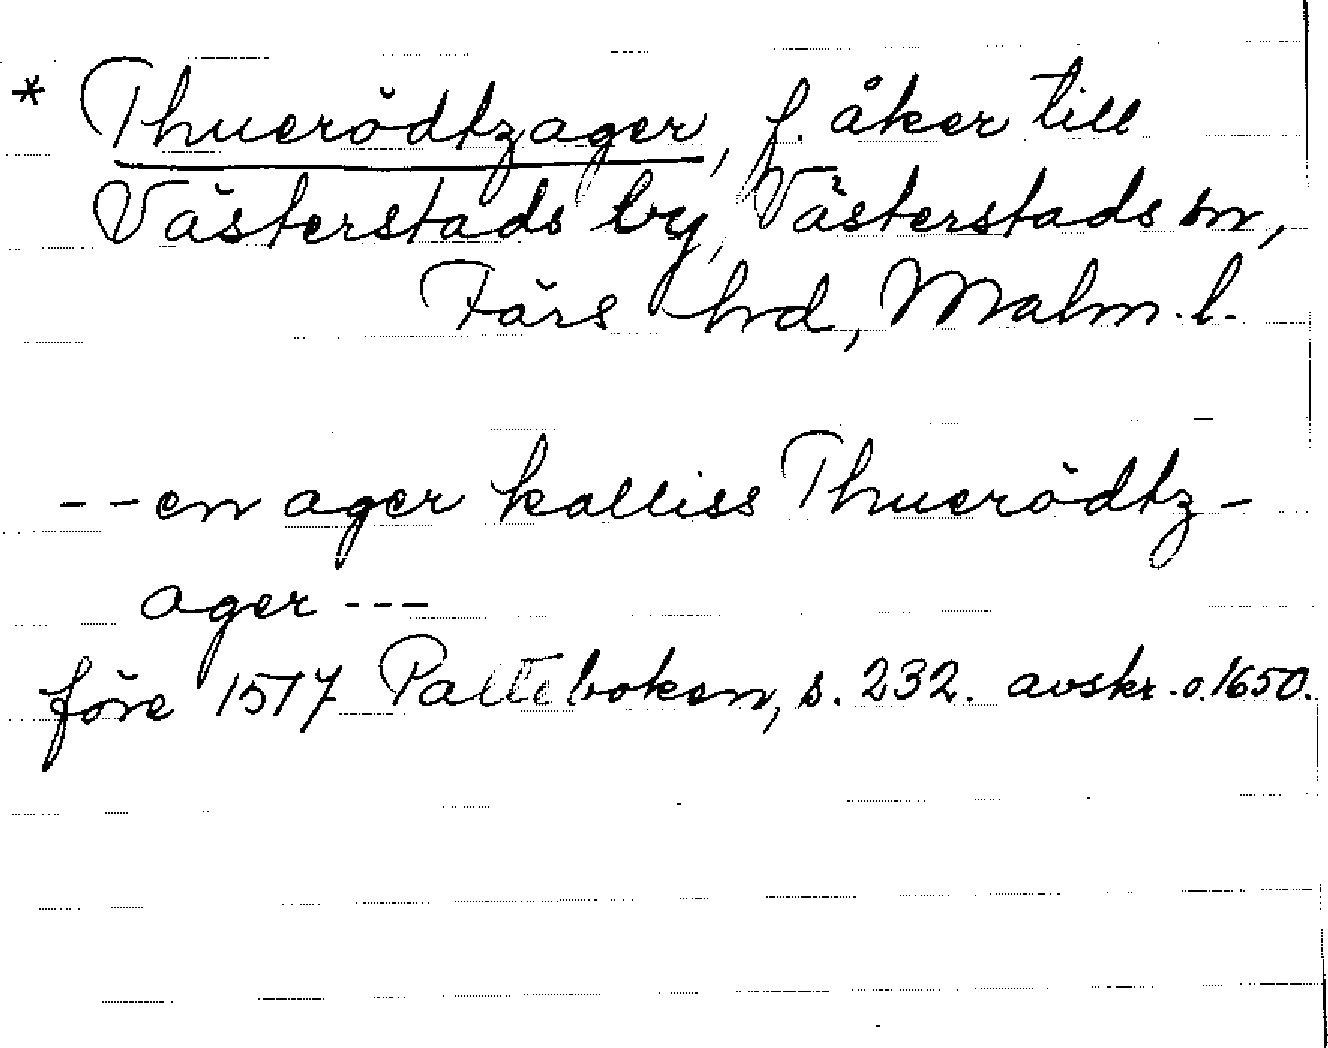 * Thuerödtzager, f. åker till
Västerstads by, Västerstads sn,
Färs hrd, Malm. l.
- - en ager kalliss Thuerödtz-
ager - - -
före 1517 Palteboken, s. 232. avskr. o. 1650.